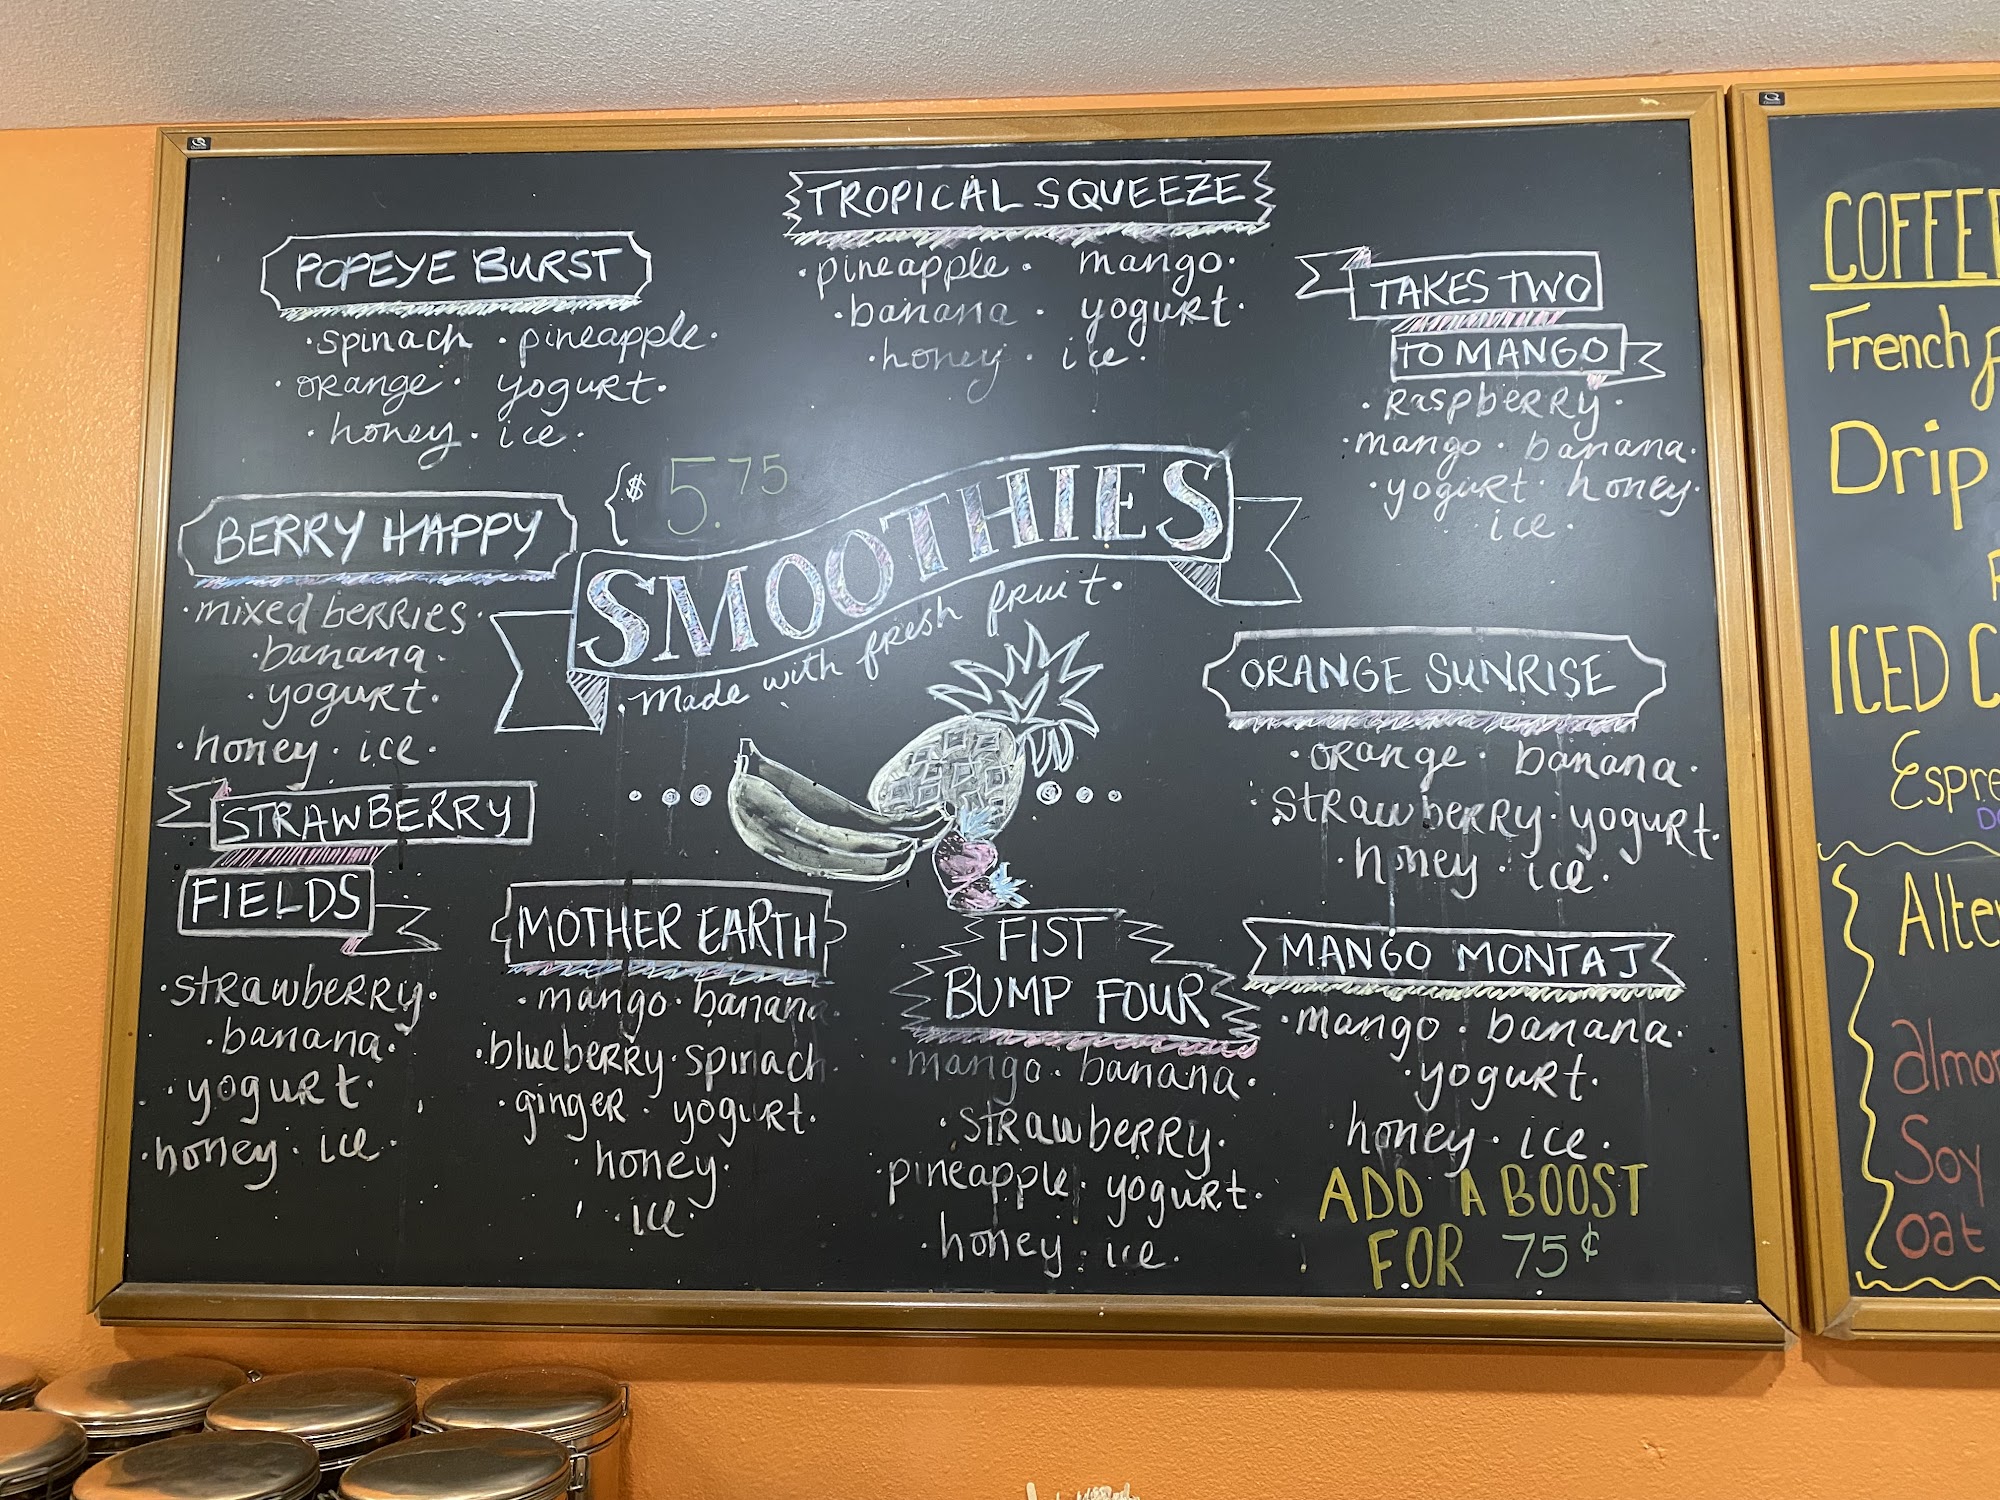 TROPICAL SQUEEZE
• pineapple • mango •
• banana • yogurt •
• honey • ice •
POPEYE BURST
• spinach • pineapple •
• orange • yogurt •
• honey • ice •
TAKES TWO
TO MANGO
• raspberry •
• mango • banana •
• yogurt • honey •
ice •
$ 5.75
SMOOTHIES
• made with fresh fruit •
BERRY HAPPY
• mixed berries •
• banana •
• yogurt •
• honey • ice •
ORANGE SUNRISE
• orange • banana •
• strawberry • yogurt •
• honey • ice •
STRAWBERRY
FIELDS
• strawberry •
• banana •
• yogurt •
• honey • ice •
MOTHER EARTH
• mango • banana •
• blueberry • spinach •
• ginger • yogurt •
• honey •
• ice •
FIST
BUMP FOUR
• mango • banana •
• strawberry •
• pineapple • yogurt •
• honey • ice •
MANGO MONTAJ
• mango • banana •
• yogurt •
• honey • ice •
ADD A BOOST
FOR 75¢
French
Drip
ICED
Soy
oat